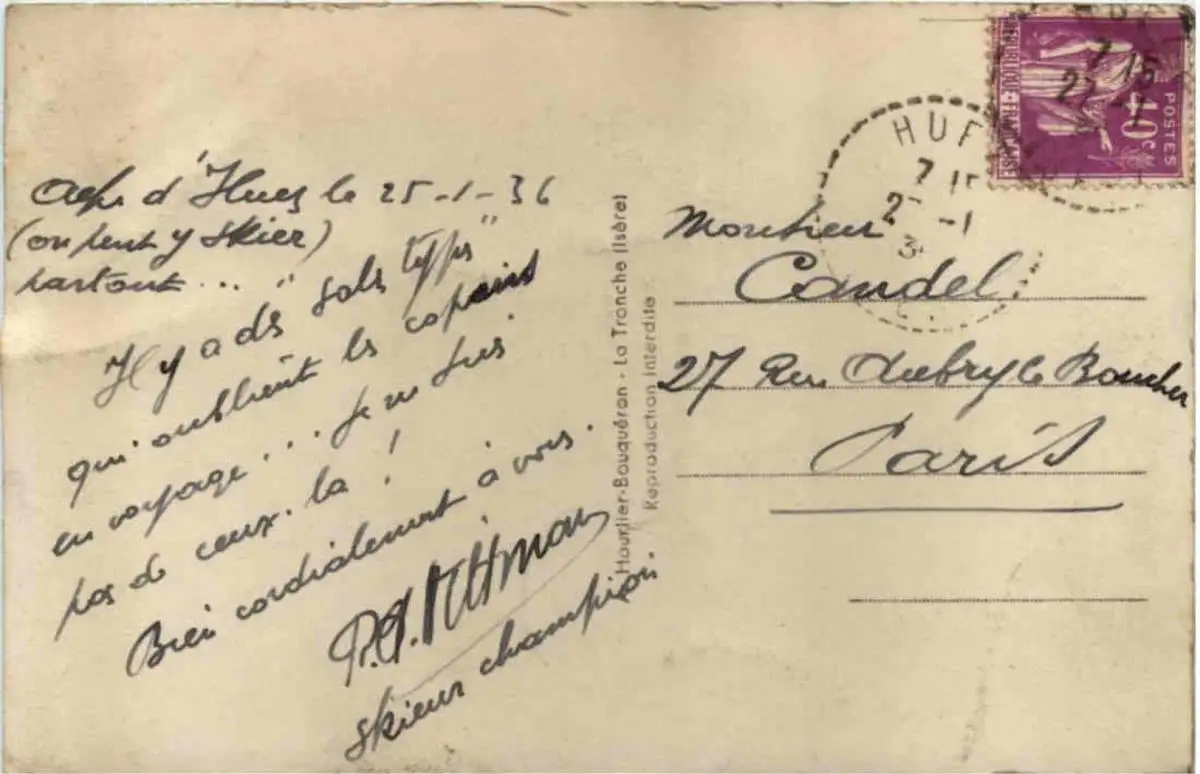 Alpe d'Huez le 25-1-36
(on peut y skier)
partout... "
Il y a des "sales types"
qui oublient les copains
en voyage... je ne suis
pas de ceux-là!
Bien cordialement à vous.
skieur champion.
Hourlier-Bouquéron - La Tronche (Isère)
Reproduction Interdite
Monsieur
Candel.
27 Rue Aubry le Boucher
Paris
HUE
7 15
2 -1
3
REPUBLIQUE FRANÇAISE
POSTES
40c
7 15
27 -1